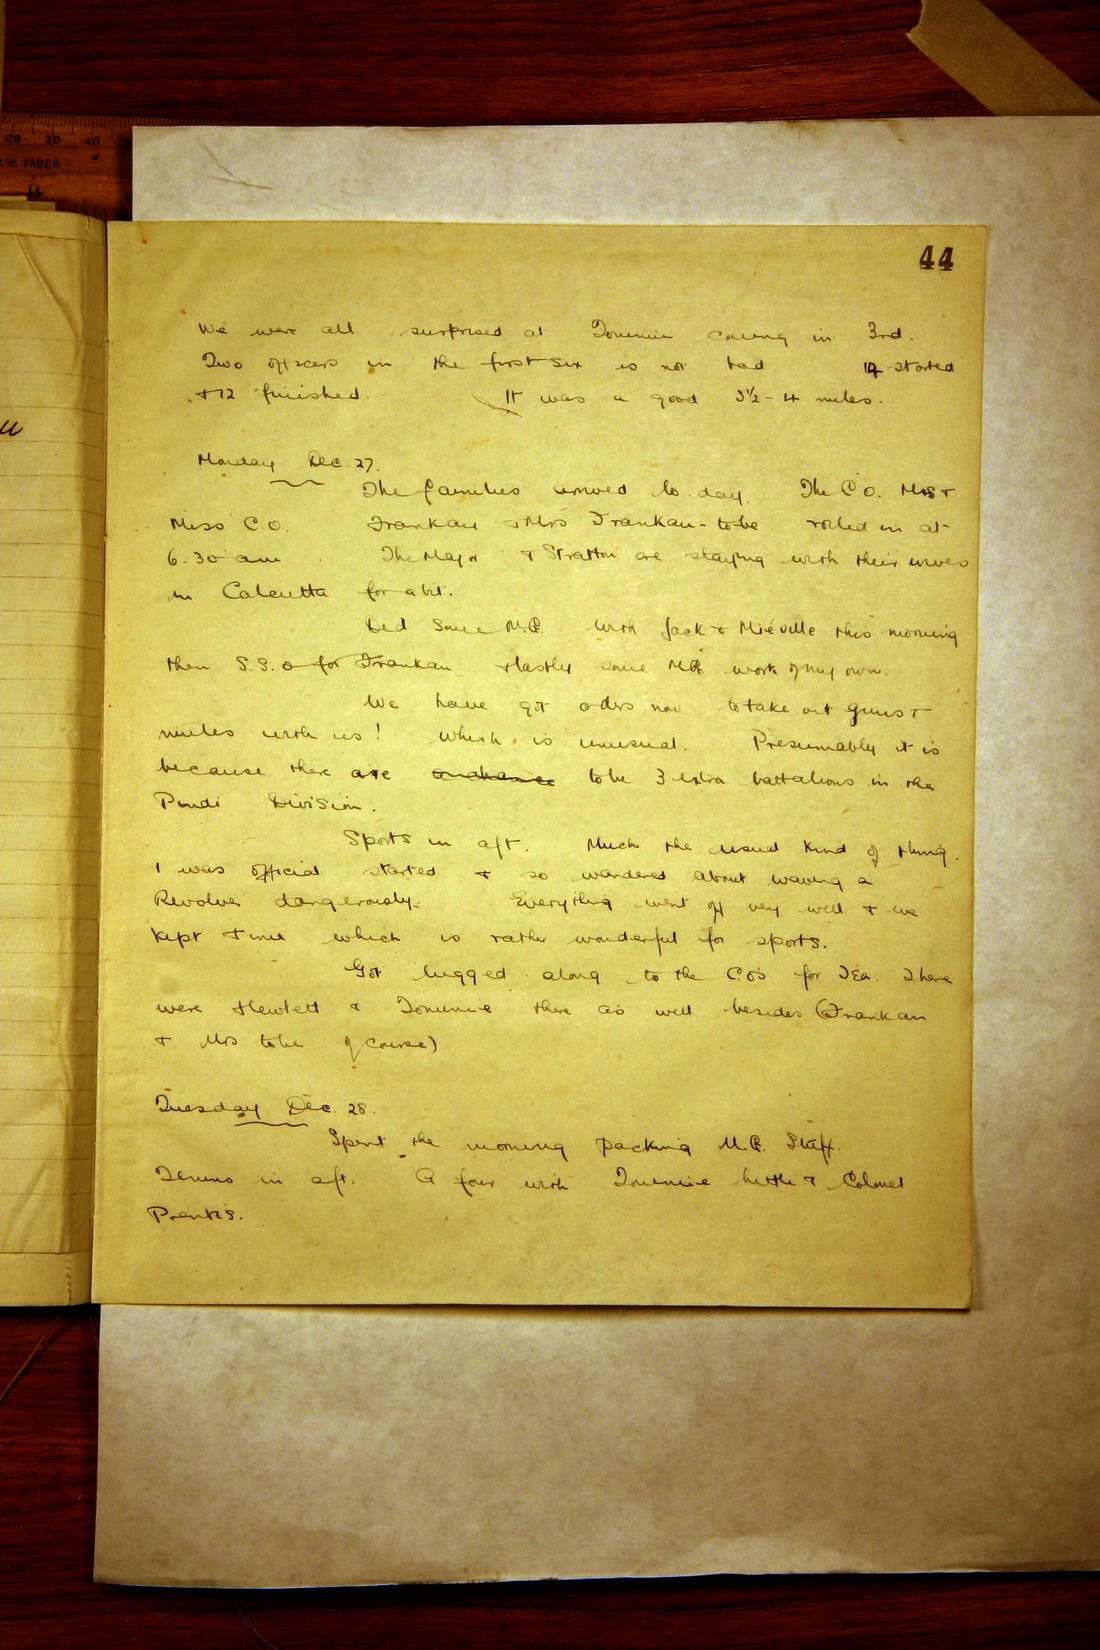 20 30 40
W. FABER
11
44
We were all surprised at Tommie coming in 3rd.
Two officers in the first six is not bad 14 started
+ 12 finished. It was a good 3½ - 4 miles.
Monday Dec. 27.
The families arrived to day. The C.O. Mrs +
Miss C.O. Frankau + Mrs Frankau-to be rolled in at
6.30 am. The Major + Stratton are staying with their wives
in Calcutta for a bit.
Did some M.G. with Jack + Miéville this morning
then S.S.O for Frankau + lastly some M.G. work of my own.
We have got orders now to take out guns +
mules with us! Which is unusual. Presumably it is
because there are to be 3 extra battalions in the
Pindi Division.
Sports in aft. Much the usual kind of thing.
I was official started + so wandered about waving a
Revolver dangerously. Everything went off very well + we
kept time which is rather wonderful for sports.
Got lugged along to the C.O's for Tea. There
were Hewlett + Tommie there as well besides (Frankau
+ Mrs to be of course)
Tuesday Dec. 28.
Spent the morning packing M.G. Stuff.
Tennis in aft. A four with Tommie Little + Colonel
Prentis.